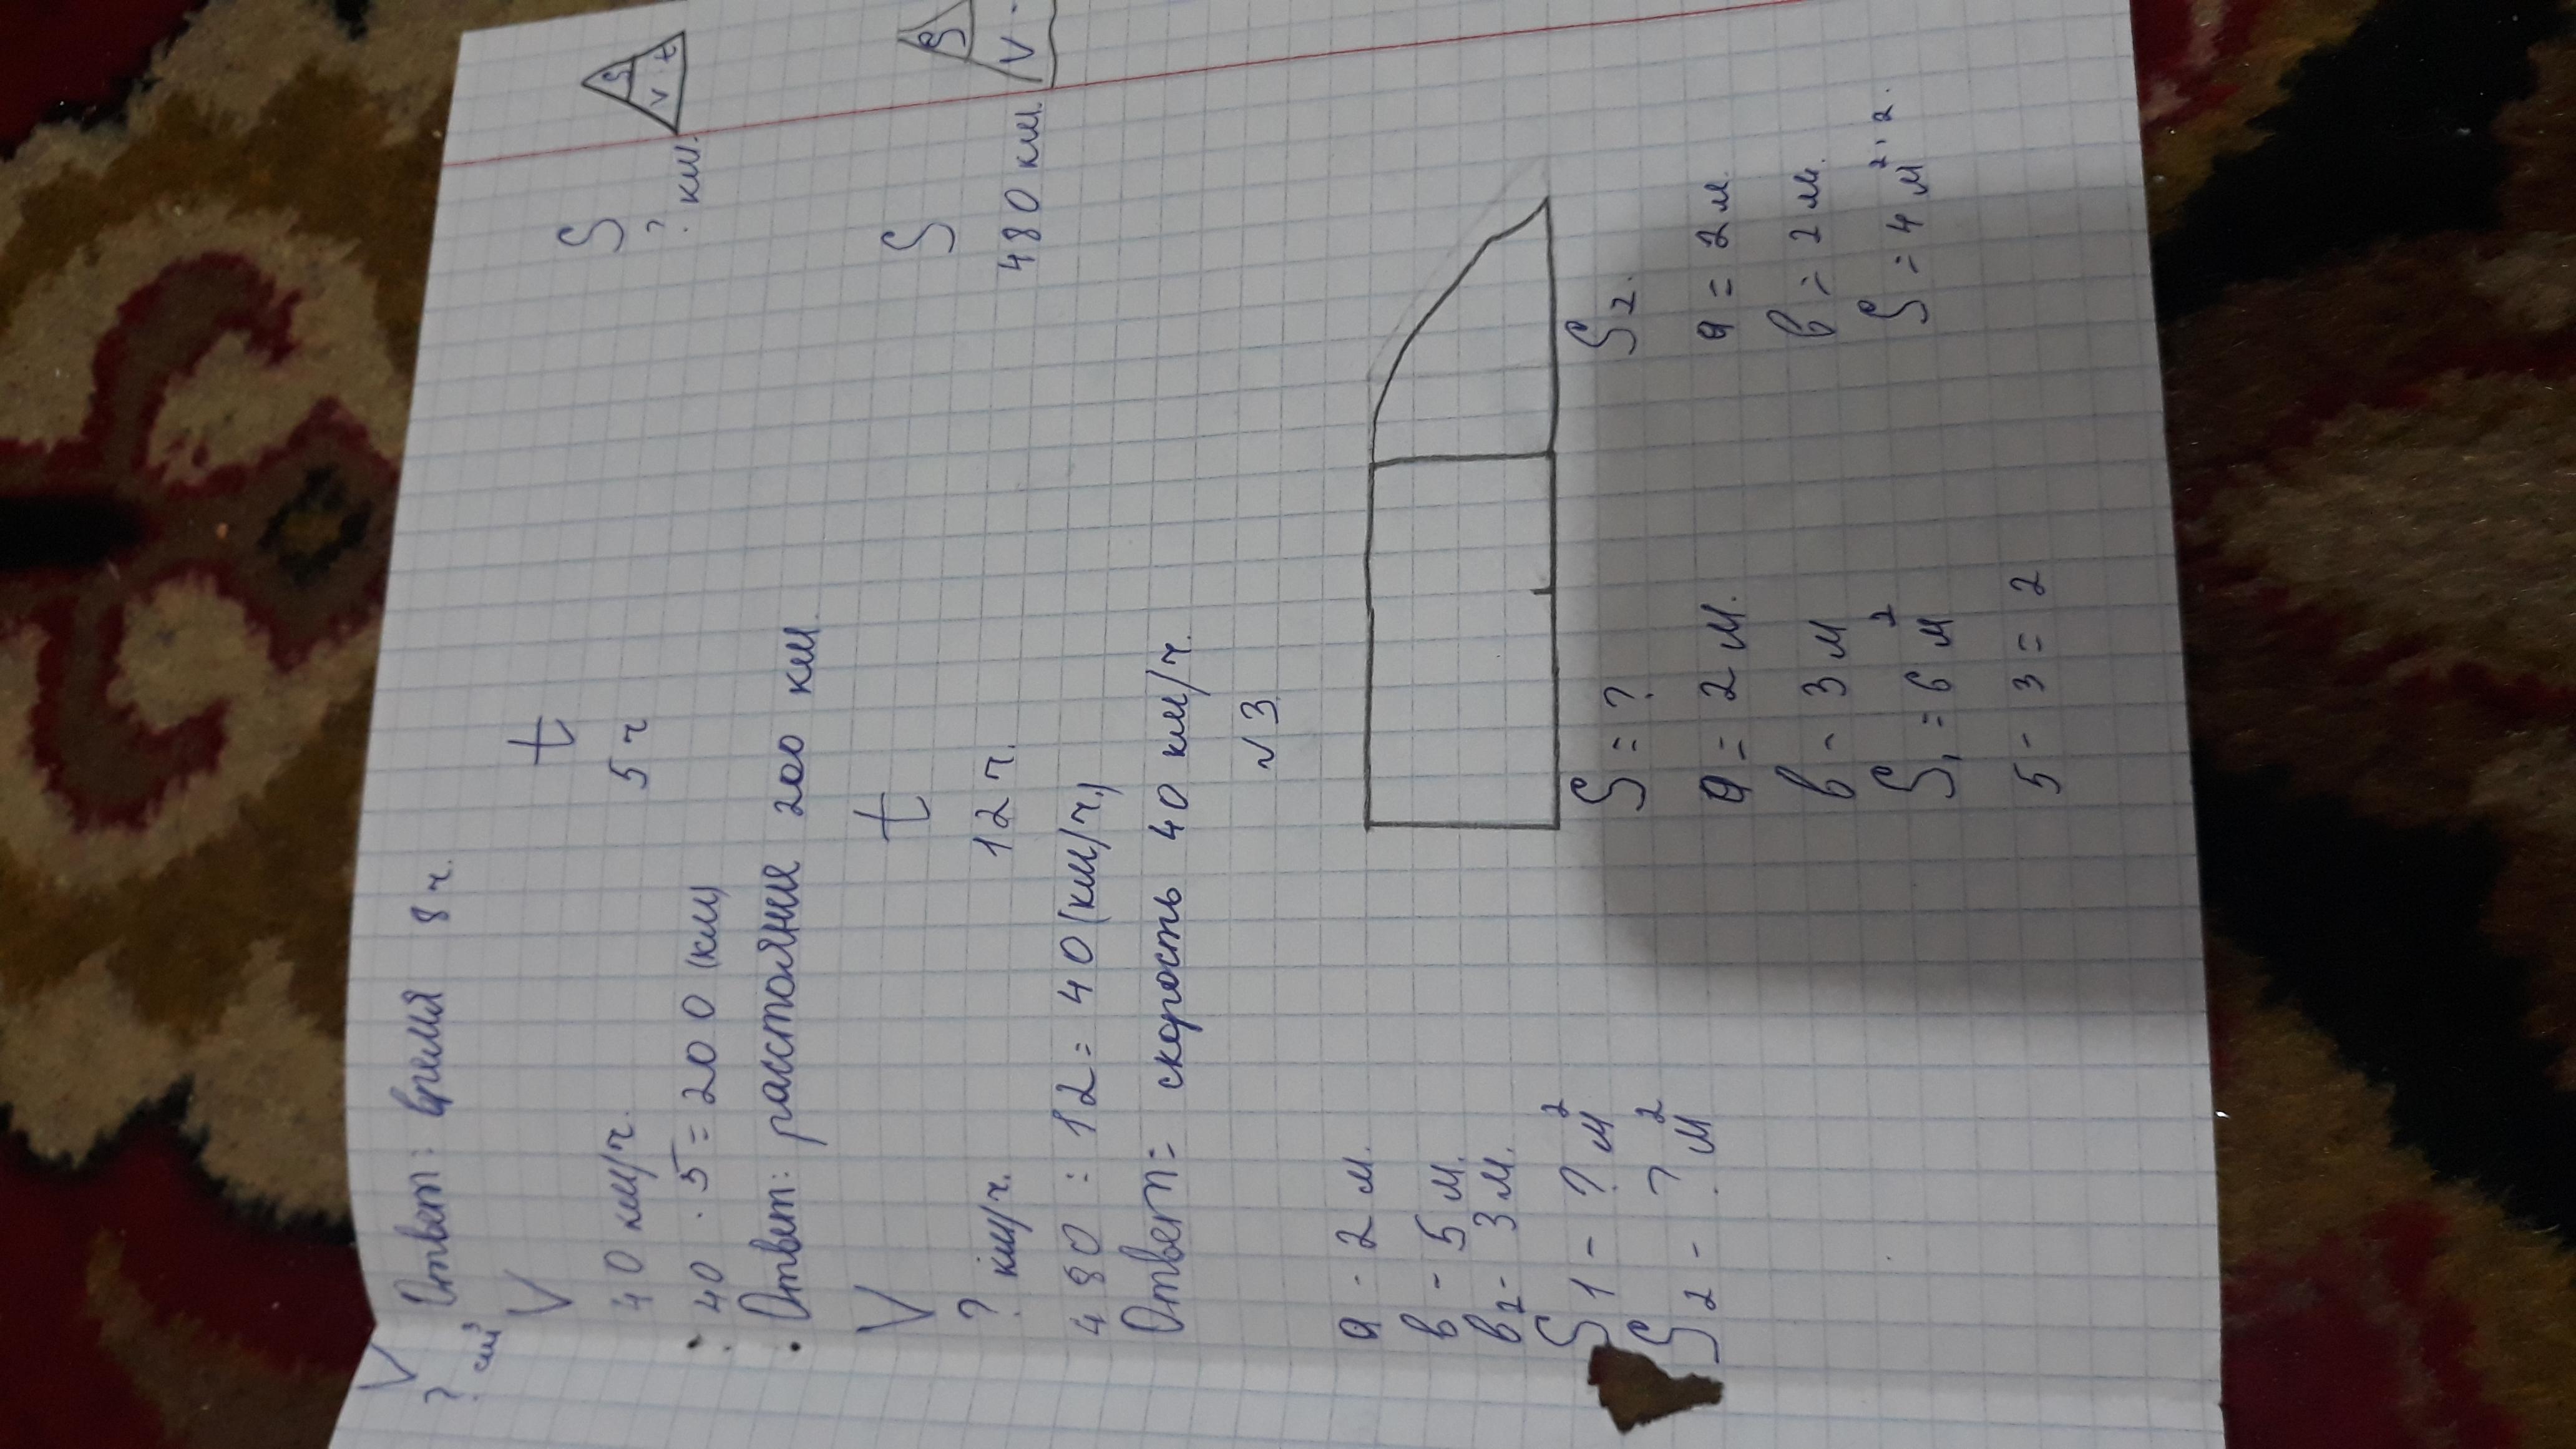 V
? см³
Ответ: время 8 ч.
V t S
40 км/ч. 5 ч ? км.
S
v · t
40 · 5 = 200 (км)
Ответ: расстояние 200 км.
V t S
? км/ч. 12 ч. 480 км.
S
V ·
480 : 12 = 40 (км/ч.)
Ответ: скорость 40 км/ч.
√3
a - 2 м.
в - 5 м.
в2 - 3 м.
S1 - ? м²
S2 - ? м²
S = ?
a = 2 м.
в - 3 м
S1 = 6 м²
5 - 3 = 2
S2.
a = 2 м.
в = 2 м.
S = 4 м²